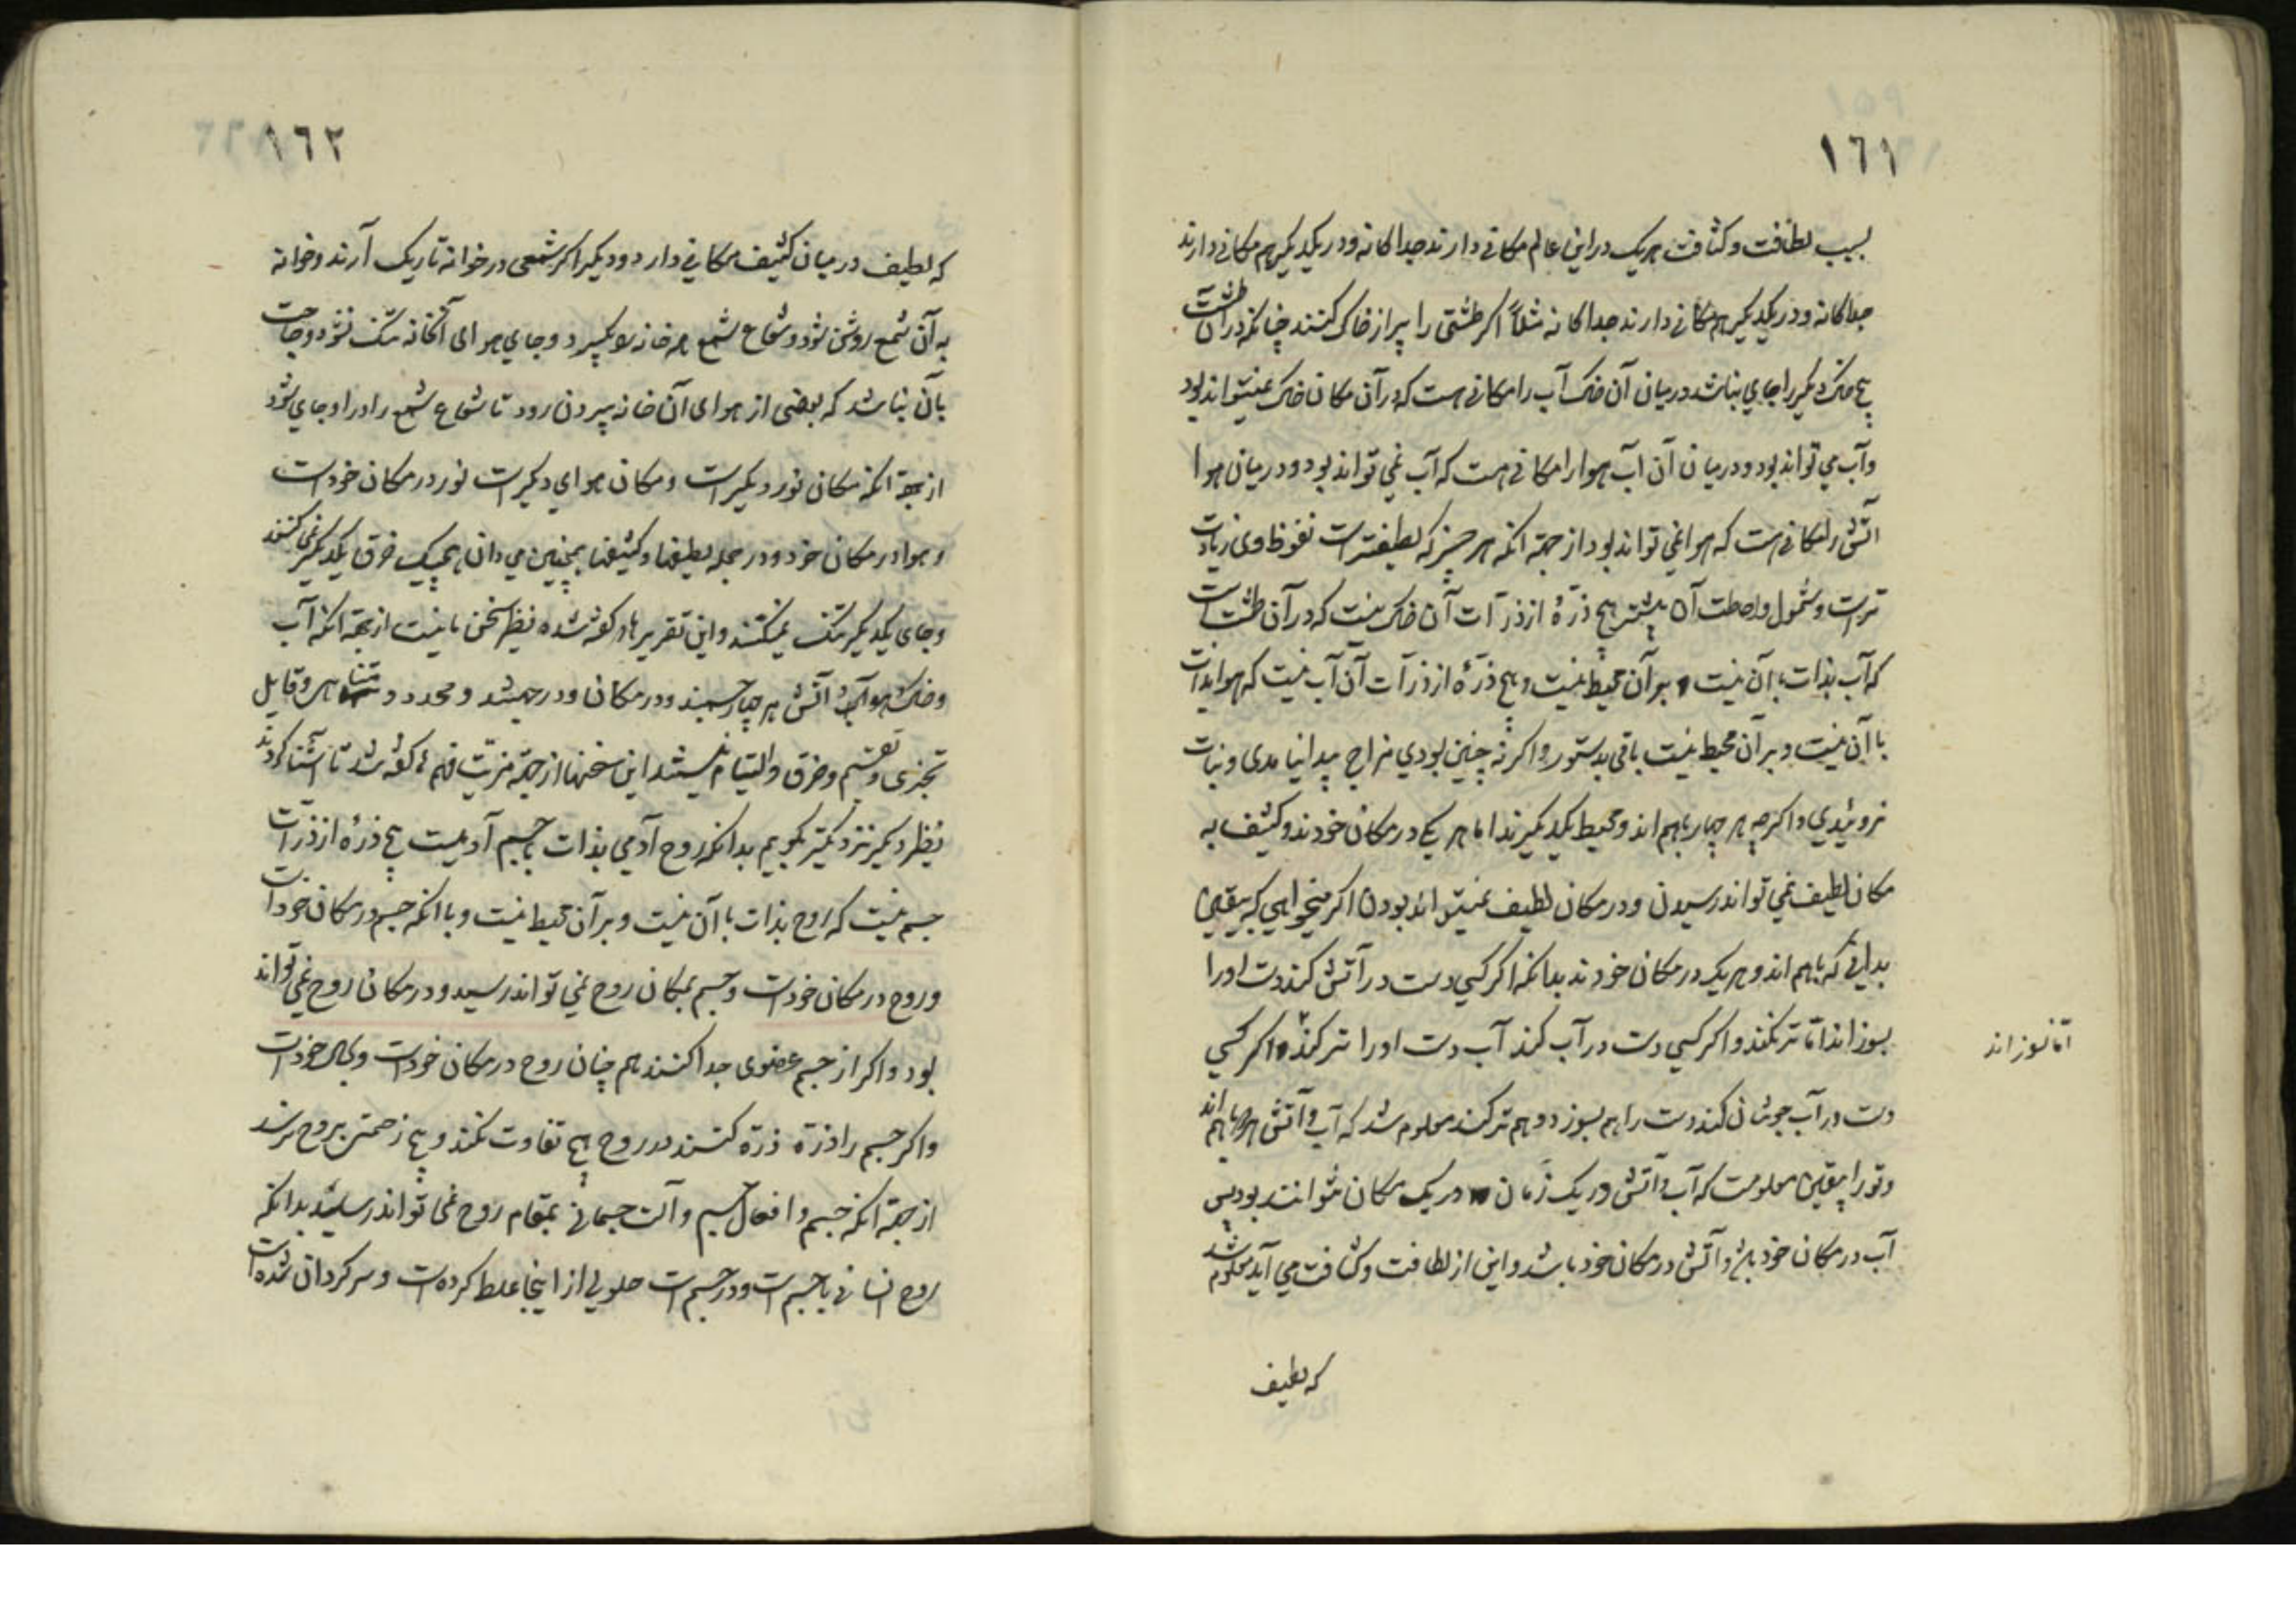 ١٦١
بسبب لطافت و کثافت هریک دراین عالم مکانی دارند جداکانه و در یکدیکر هم مکانی دارند
جداکانه و در یکدیکر هم مکانی دارند جداکانه مثلاً اکر طشتی را پر از خاک کنند چنانکه در آن طشت
هیچ خاک دیکر را جای نباشد درمیان آن خاک آب را مکانی هست که در آن مکان خاک نمیتواند بود
و آب می تواند بود و درمیان آن آب هوا را مکانی هست که آب نمی تواند بود و درمیان هوا
آتش را مکانی هست که هوا نمی تواند بود از جهة آنکه هر چیز که لطیفتر است نفوذ وی زیادت
تر است و شمول و احاطت آن بیشتر هیچ ذرّهٔ از ذرّات آن خاک نیست که در آن طشت است
که آب بذات با آن نیست و بر آن محیط نیست و هیچ ذرّهٔ از ذرّات آن آب نیست که هوا بذات
با آن نیست و بر آن محیط نیست باقی بدستور و اکر نه چنین بودی مزاج پیدا نیامدی و نبات
نروئیدی و اکرچه هر چهار باهم اند و محیط یکدیکرند اما هر یکی در مکان خودند و کثیف به
مکان لطیف نمی تواند رسیدن و در مکان لطیف نمیتواند بود اکر میخواهی که بیقین
بدانی که باهم اند و هریک در مکان خودند بدانکه اکر کسی دست در آتش کند دست او را
بسوزاند امّا تر نکند و اکر کسی دست در آب کند آب دست او را تر کند و اکر کسی
امّا نسوزاند
دست در آب جوشان کند دست را هم بسوزد و هم تر کند معلوم شد که آب و آتش هر دو باهم اند
و تو را بیقین معلومست که آب و آتش در یک زمان در یک مکان نتوانند بود پس
آب در مکان خود باشد و آتش در مکان خود باشد و این از لطافت و کثافت می آید معلوم شد
که لطیف
١٦٢
که لطیف درمیان کثیف مکانی دارد و دیکر اکر شمعی در خوانه تاریک آرند و خوانه
به آن شمع روشن شود و شعاع شمع همه خانه را بکیرد و جای هوای آنخانه تنک نشود و حاجت
بآن نباشد که بعضی از هوای آن خانه بیرون رود تا شعاع شمع را در او جای شود
از جهة آنکه مکان نور دیکر است و مکان هوای دیکر است نور در مکان خود است
و هوا در مکان خود و در جمله لطیفها و کثیفها همچنین می دان هیچیک خرق یکدیکر نمی کنند
و جای یکدیکر تنک نمیکنند و این تقریرها که کفته شده نظیر سخن ما نیست از جهة آنکه آب
و خاک و هوا و آتش هر چهار جسمند و در مکان و در جهتند و محدود و متناهی و قابل
تجزی و تقسیم و خرق و التیام نیستند این سخنها از جهة قربت فهم ها کفته شد تا آشنا کردند
نظر دیکر نزدیکتر بکویم بدانکه روح آدمی بذات با جسم آدمیست هیچ ذرهٔ از ذرّات
جسم نیست که روح بذات با آن نیست و بر آن محیط نیست و با آنکه جسم در مکان خود است
و روح در مکان خود است و جسم بمکان روح نمی تواند رسید و در مکان روح نمی تواند
بود و اکر از جسم عضوی جدا کنند هم چنان روح در مکان خود است و بکمال خود است
و اکر جسم را ذرّه ذرّه کنند در روح هیچ تفاوت نکند و هیچ زحمتی بروح نرسد
از جهة آنکه جسم و افعال جسم و آلت جسمانی بمقام روح نمی تواند رسید بدانکه
روح انسانی با جسم است و در جسم است حلولی از اینجا غلط کرده است و سرکردان شده است